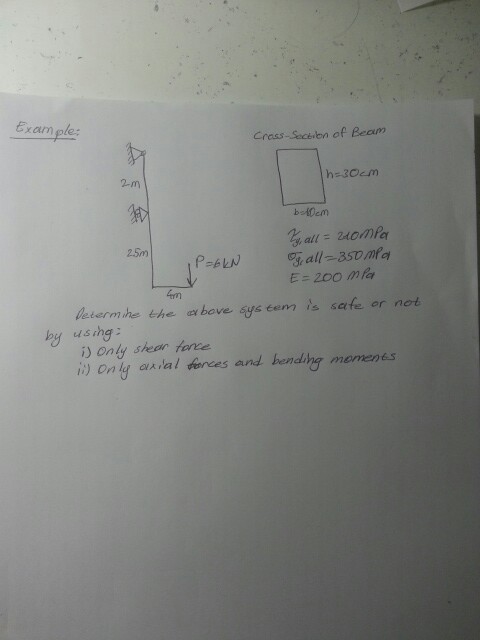 Example:
Cross-Section of Beam
2m
h=30cm
b=10cm
25m
P=6kN
4m
τy,all = 210MPa
σy,all = 350MPa
E = 200 MPa
Determine the above system is safe or not
by using:
i) Only shear force
ii) Only axial forces and bending moments